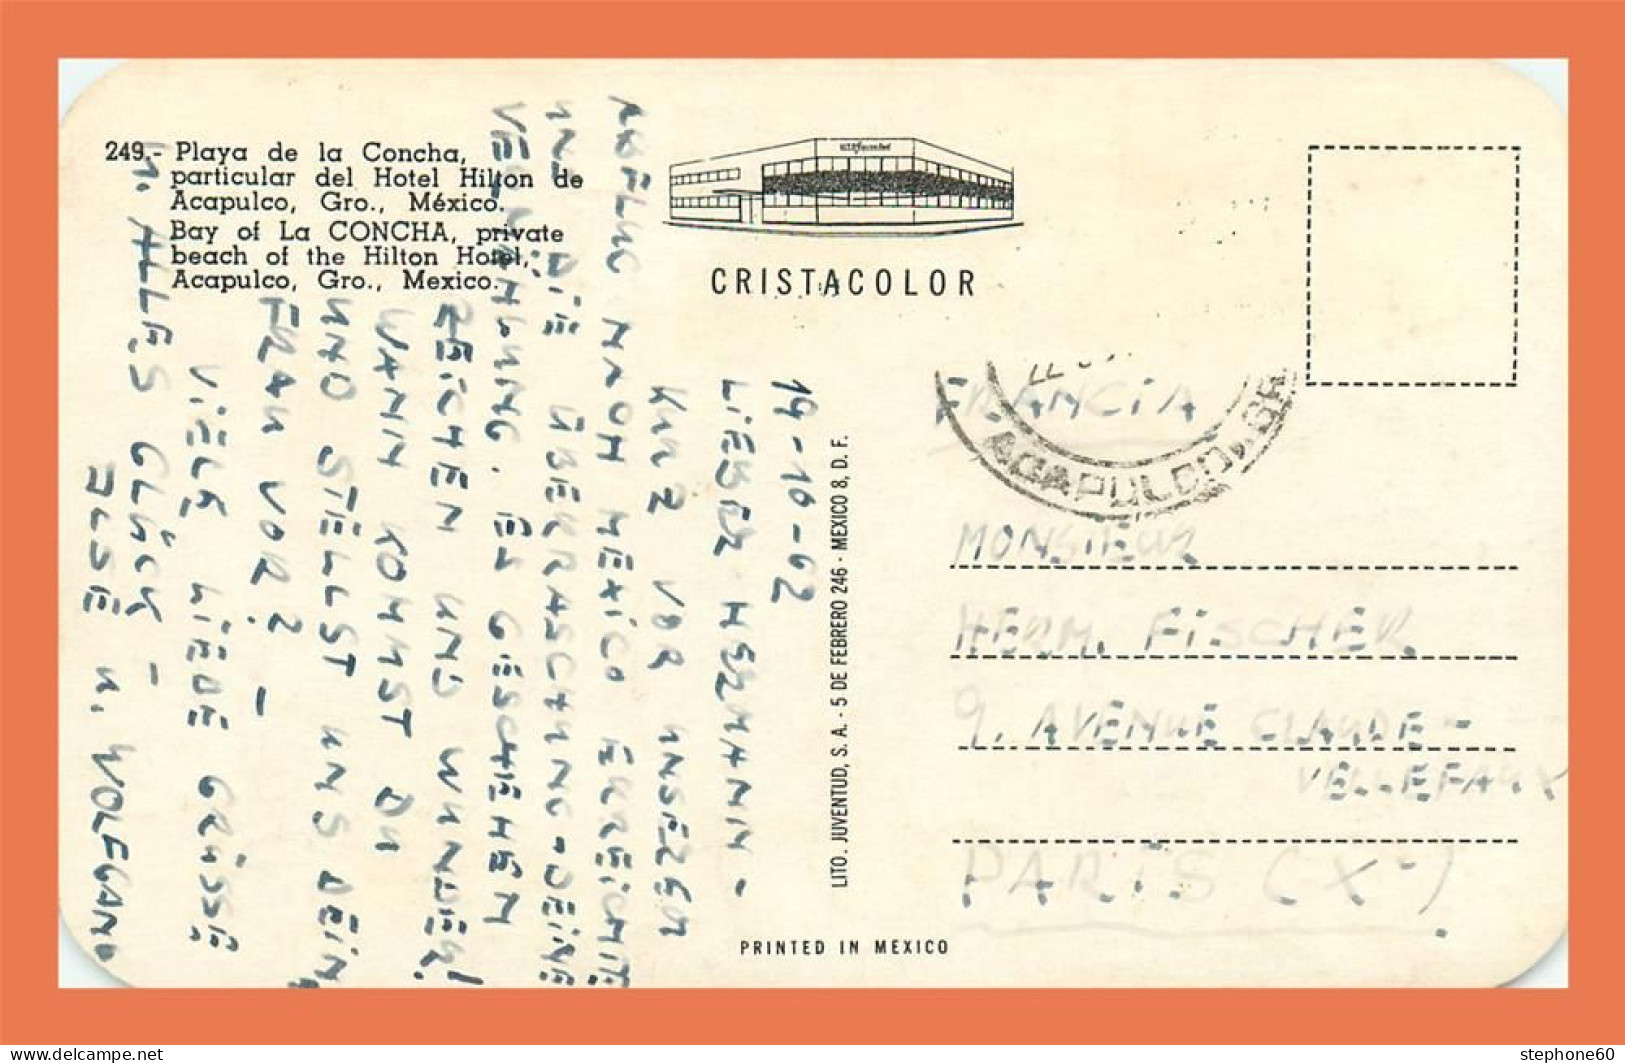 249.- Playa de la Concha,
particular del Hotel Hilton de
Acapulco, Gro., México.
Bay of La CONCHA, private
beach of the Hilton Hotel,
Acapulco, Gro., Mexico.
CRISTACOLOR
LITO. JUVENTUD, S. A. - 5 DE FEBRERO 246 - MEXICO 8, D. F.
PRINTED IN MEXICO
19-10-62
LIEBER HERMANN -
KURZ VOR UNSEREM
ABFLUG NACH MEXICO ERREICHTE
UNS DIE ÜBERRASCHUNG - DEINE
VERMÄHLUNG. ES GESCHEHEN
ZEICHEN UND WUNDER!
WANN KOMMST DU
UND STELLST UNS DEINE
FRAU VOR? -
VIELE LIEBE GRÜSSE
U. ALLES GLÜCK -
ILSE U. WOLFGANG
FRANCIA
ACAPULCO, GR
MONSIEUR
HERM. FISCHER
9. AVENUE CLAUDE-
VELLEFAUX
PARIS (X-)
www.delcampe.net
stephone60